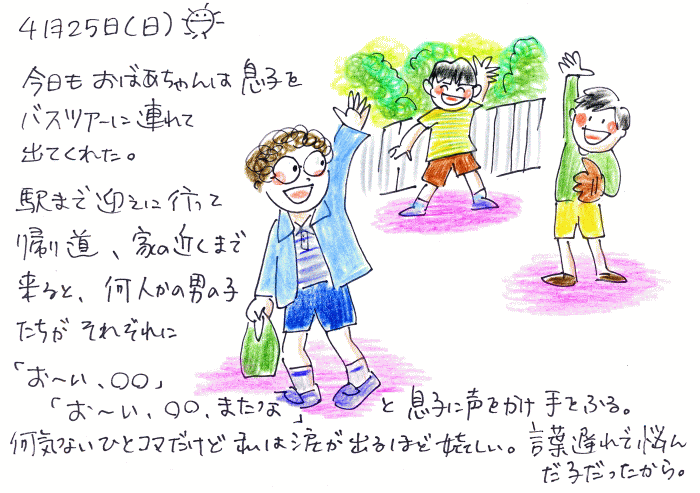 4月25日(日)
今日も おばあちゃんは 息子を
バスツアーに 連れて
出てくれた。
駅まで 迎えに 行って
帰り道、家の近くまで
来ると、何人かの男の子
たちが それぞれに
「お〜い、〇〇」
「お〜い、〇〇、またな」と 息子に声をかけ 手をふる。
何気ないひとコマだけど 私は涙が出るほど 嬉しい。言葉遅れで悩ん
だ子だったから。